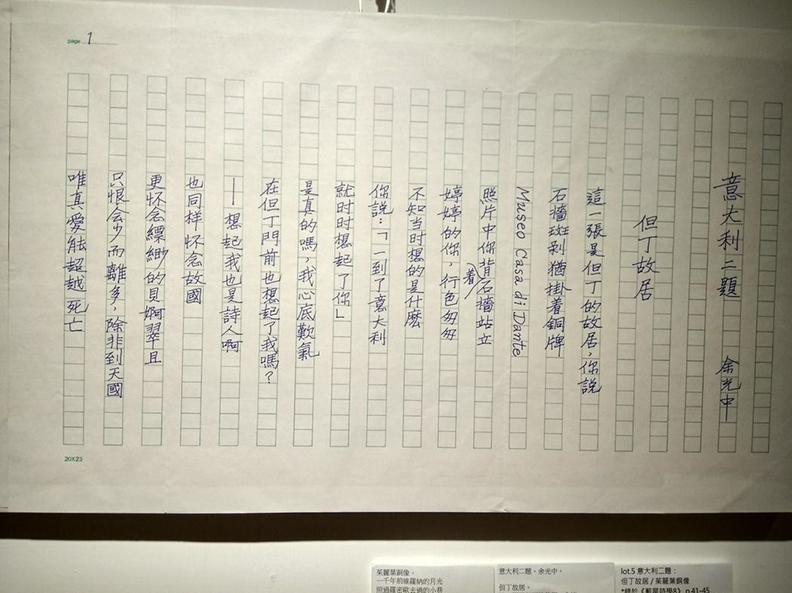 page 1
意大利二題 余光中
但丁故居
這一張是但丁的故居,你說
石墻斑剥猶掛着銅牌
Museo Casa di Dante
照片中你背着石墻站立
婷婷的你,行色匆匆
不知当时想的是什麽
你說:「一到了意大利
就时时想起了你」
是真的嗎,我心底歎氣
在但丁門前也想起了我嗎?
——想起我也是詩人啊
也同样怀念故國
更怀念縹緲的貝婀翠且
只恨会少而離多,除非到天國
唯真愛能超越死亡
20X25
茱麗葉銅像。
一千年前維羅納的月光
照過羅密歐去過的小巷
意大利二題。余光中。
但丁故居。
lot.5 意大利二題:
但丁故居 / 茱麗葉銅像
p.41-45